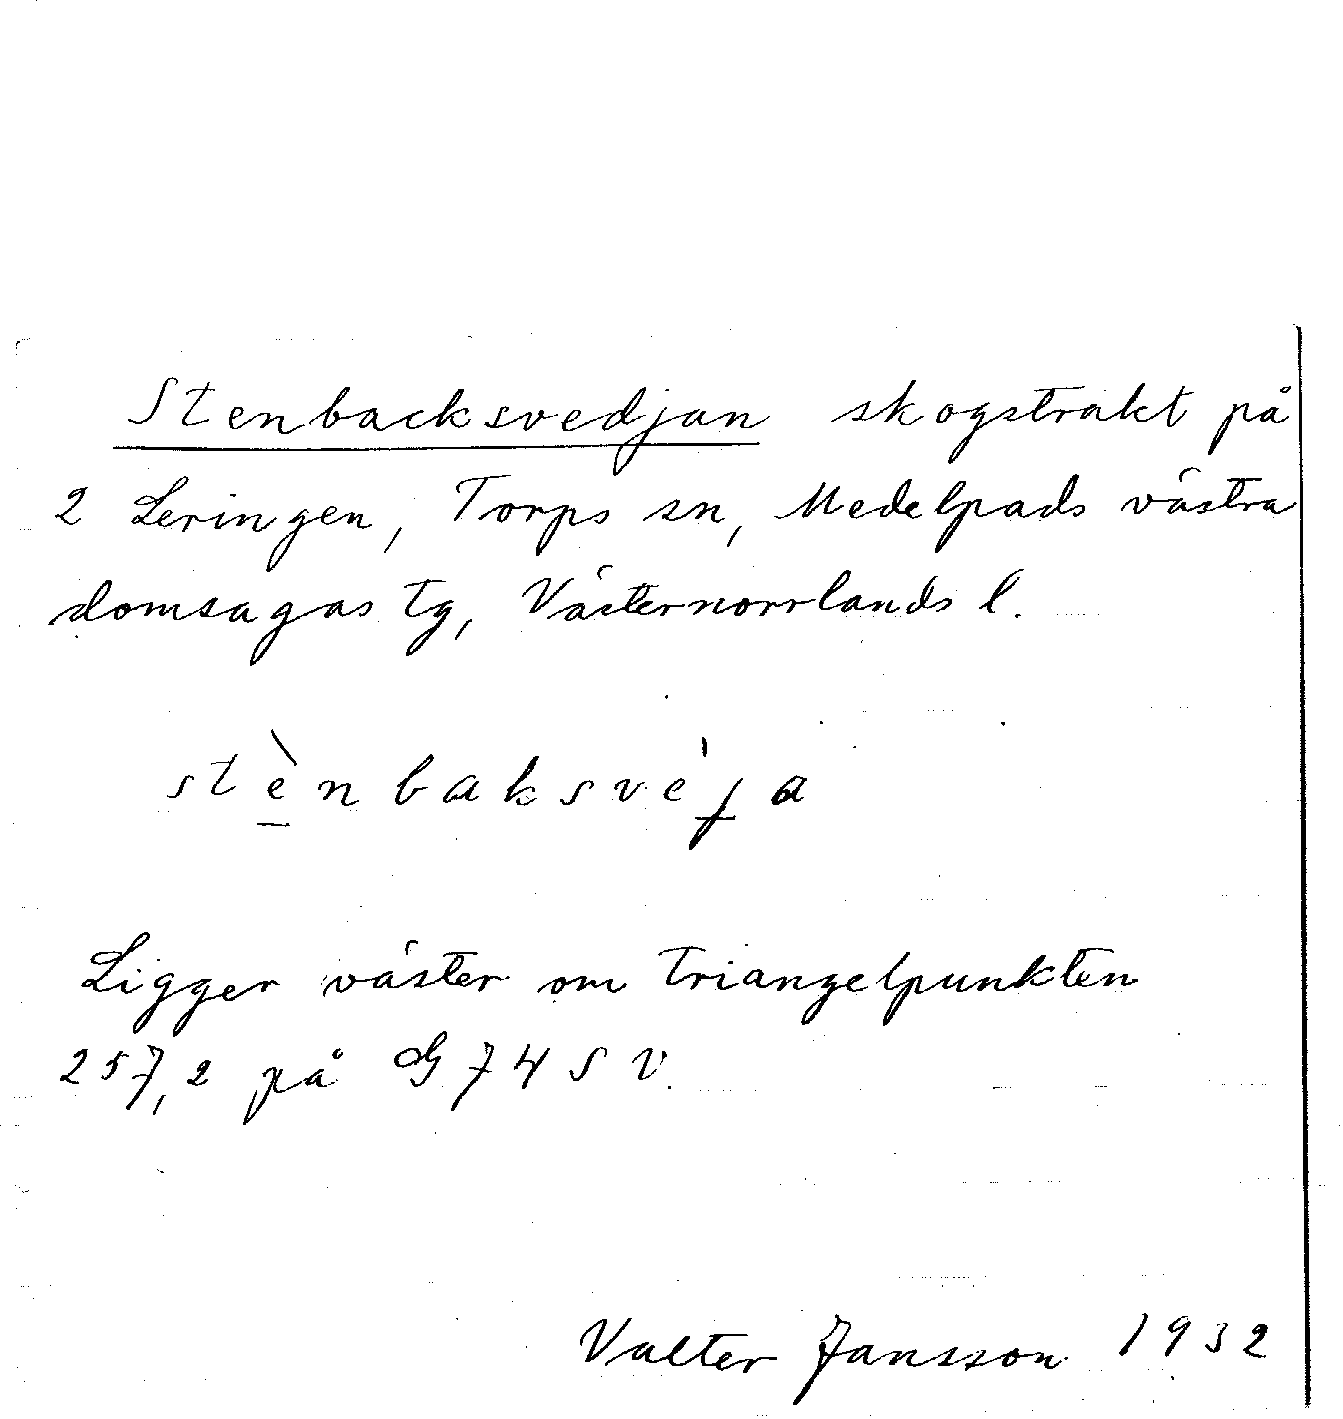 Stenbacksvedjan skogstrakt på
2 Leringen, Torps sn, Medelpads västra
domsagas tg, Västernorrlands l.
stè̱nbaksvèɟa
Ligger väster om triangelpunkten
257,2 på G 74 SV.
Valter Jansson 1932